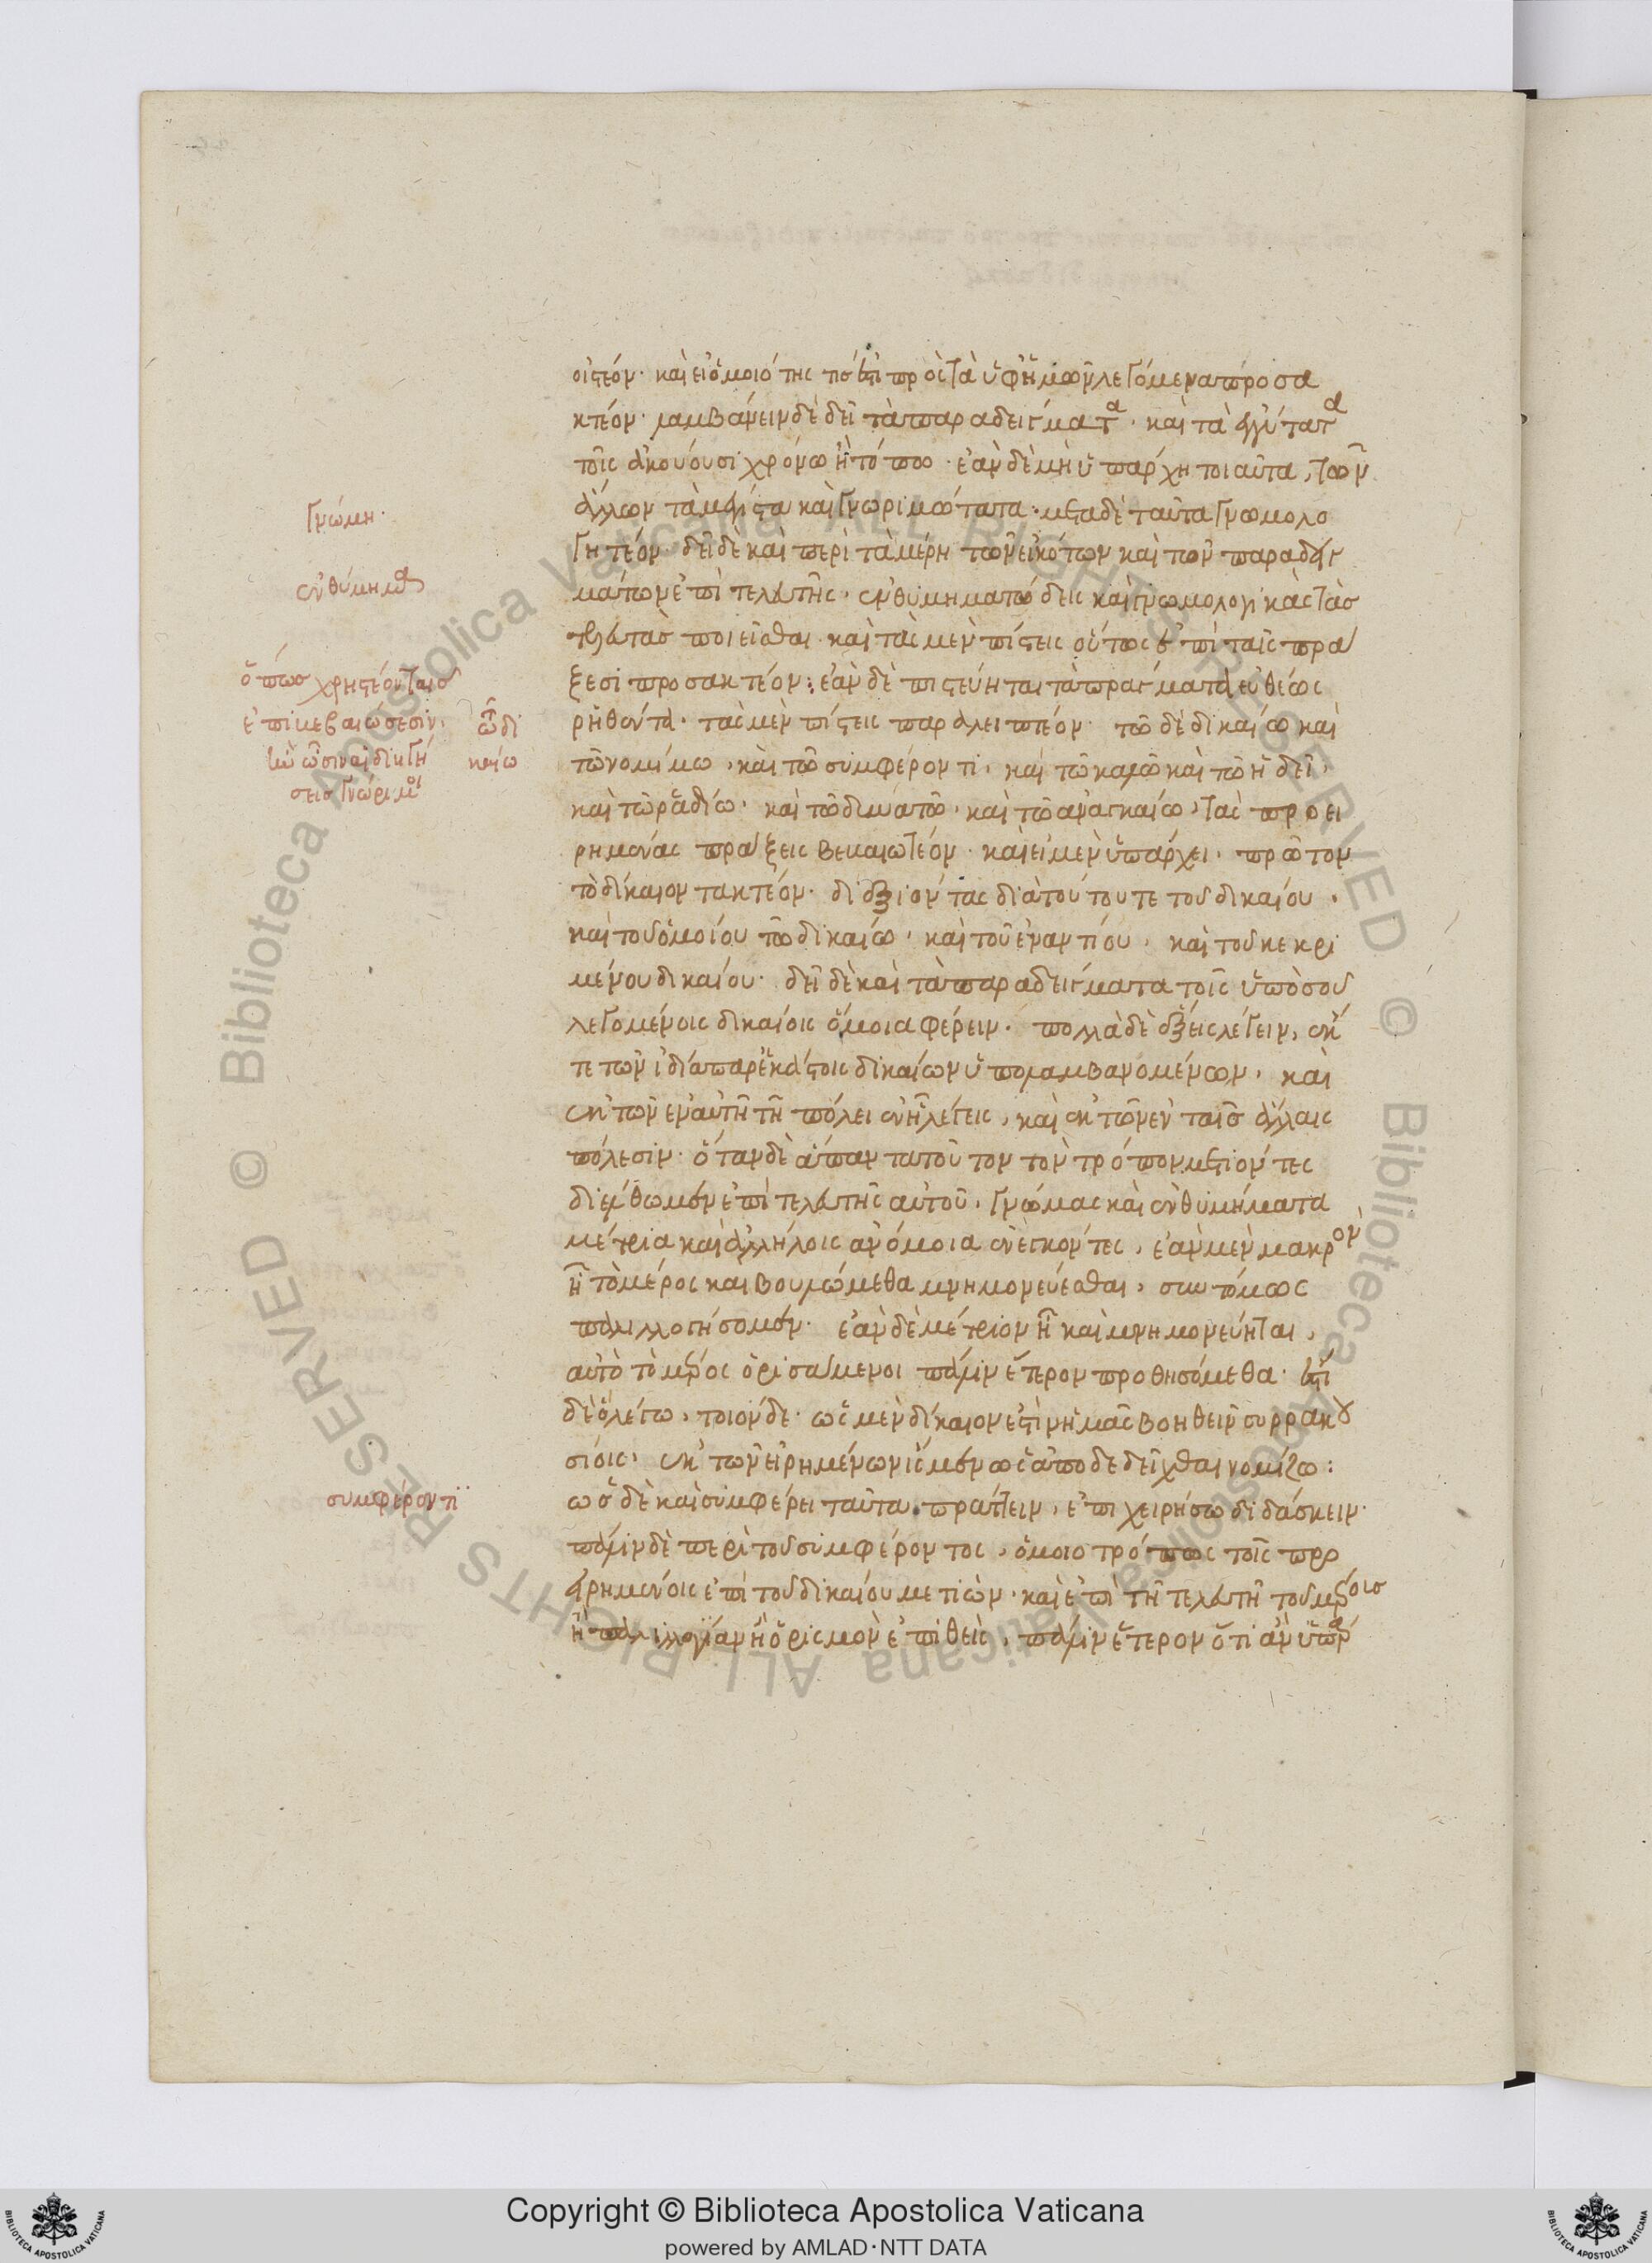 οἰστέον· καὶ εἰ ὁμοιότης τίς ἐστι πρὸς τὰ ὑφ' ἡμῶν λεγόμενα προσα
κτέον· λαμβάνειν δὲ δεῖ τὰ παραδείγματα· καὶ τὰ ἐγγύτατα
τοῖς ἀκούουσι χρόνω ἢ τόπω· ἐὰν δὲ μὴ ὑπάρχη τοιαῦτα, τῶν
ἄλλων τὰ μέγιστα καὶ γνωριμώτατα· μετὰ δὲ ταῦτα γνωμολο
Γνώμη·
γητέον· δεῖ δὲ καὶ περὶ τὰ μέρη τῶν εἰκότων καὶ τῶν παραδειγ
μάτων ἐπὶ τελευτῆς, ἐνθυμηματώδεις καὶ γνωμολογικὰς τὰς
ἐνθύμημα
τελευτὰς ποιεῖσθαι· καὶ τὰς μὲν πίστεις οὕτως ἐπὶ ταῖς πρά
ξεσι προσακτέον: ἐὰν δὲ πιστεύηται τὰ πράγματα εὐθέως
ὅπως χρηστέον ταῖς
ἐπικεβαιώσεσιν·
ἐὰν ὦσιν αἱ διηγή
σεις γνώριμοι
τῶ δι
καίω
ῥηθέντα· τὰς μὲν πίστεις παραλειπτέον· τῶ δὲ δικαίω καὶ
τῶ νομίμω, καὶ τῶ συμφέροντι, καὶ τῶ καλῶ καὶ τῶ ἡδεῖ,
καὶ τῶ ῥαδίω, καὶ τῶ δυνατῶ, καὶ τῶ ἀναγκαίω, τὰς προει
ρημένας πράξεις βεβαιωτέον· καὶ εἰ μὲν ὑπάρχει, πρῶτον
τὸ δίκαιον τακτέον· διεξιόντας διὰ τούτου τε τοῦ δικαίου,
καὶ τοῦ ὁμοίου τῶ δικαίω, καὶ τοῦ ἐναντίου, καὶ τοῦ κεκρι
μένου δικαίου· δεῖ δὲ καὶ τὰ παραδείγματα τοῖς ὑπὸ σοῦ
λεγομένοις δικαίοις ὅμοια φέρειν· πολλὰ δὲ ἕξεις λέγειν, ἔκ
τε τῶν ἰδία παρ' ἑκάστοις δικαίων ὑπολαμβανομένων, καὶ
ἐκ τῶν ἐν αὐτῆ τῆ πόλει ἐν ἧ λέγεις, καὶ ἐκ τῶν ἐν ταῖς ἄλλαις
πόλεσιν· ὅταν δὲ ἅπαντα τοῦτον τὸν τρόπον μετιόντες
διέλθωμεν ἐπὶ τελευτῆς αὐτοῦ, γνώμας καὶ ἐνθυμήματα
μέτρια καὶ ἀλλήλοις ἀνόμοια ἐνέγκοντες, ἐὰν μὲν μακρὸν
ἦ τὸ μέρος καὶ βουλώμεθα μνημονεύεσθαι, συντόμως
παλιλλογήσομεν· ἐὰν δὲ μέτριον ἦ καὶ μνημονεύηται,
αὐτὸ τὸ μέρος ὁρισάμενοι πάλιν ἕτερον προθησόμεθα· ἔστι
δὲ ὃ λέγω, τοιόνδε· ὡς μὲν δίκαιον ἐστὶν ἡμᾶς βοηθεῖν συρρακου
σίοις, ἐκ τῶν εἰρημένων ἱκανῶς ἀποδεδεῖχθαι νομίζω:
συμφέροντι
ὡς δὲ καὶ συμφέρει ταῦτα πράττειν, ἐπιχειρήσω διδάσκειν·
πάλιν δὲ περὶ τοῦ συμφέροντος, ὁμοιοτρόπως τοῖς προ
ειρημένοις ἐπὶ τοῦ δικαίου μετιών, καὶ ἐπὶ τῆ τελευτῆ τοῦ μέρους
ἢ παλιλλογίαν ἢ ὁρισμὸν ἐπιθεὶς, πάλιν ἕτερον ὅτι ἂν ὑπάρ
Copyright © Biblioteca Apostolica Vaticana
powered by AMLAD·NTT DATA